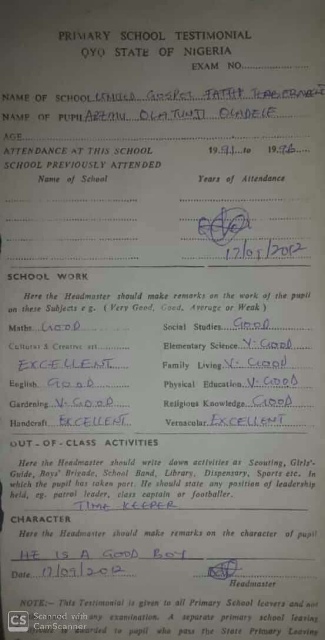 PRIMARY SCHOOL TESTIMONIAL
OYO STATE OF NIGERIA
EXAM NO....................
NAME OF SCHOOL GOSPEL FAITH
NAME OF PUPIL OLATUNJI OLADELE
AGE
ATTENDANCE AT THIS SCHOOL 1991...to 1996...
SCHOOL PREVIOUSLY ATTENDED
Name of School Years of Attendance
17/09/2012
SCHOOL WORK
Here the Headmaster should make remarks on the work of the pupil
on these Subjects e.g. (Very Good, Good, Average or Weak)
Maths GOOD Social Studies GOOD
Cultural & Creative art Elementary Science V. GOOD
EXCELLENT Family Living V. GOOD
English GOOD Physical Education V. GOOD
Gardening V. GOOD Religious Knowledge GOOD
Handcraft EXCELLENT Vernacular EXCELLENT
OUT-OF-CLASS ACTIVITIES
Here the Headmaster should write down activities as Scouting, Girls'-
Guide, Boys' Brigade, School Band, Library, Dispensary, Sports etc. In
which the pupil has taken port. He should state any position of leadership
held, eg. patrol leader, class captain or footballer.
TIME KEEPER
CHARACTER
Here the Headmaster should make remarks on the character of pupil
HE IS A GOOD BOY
Date 17/09/2012
Headmaster
NOTE:- This Testimonial is given to all Primary School leavers and not
any examination. A separate primary school leaving
is awarded to pupil who pass the State Primary Leaving
CS Scanned with
CamScanner